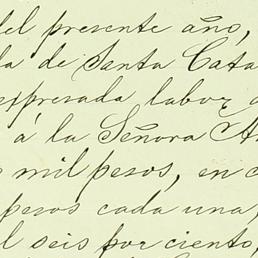 del presente año,
la de Santa Cata
expresada labor
á la Señora
mil pesos, en
pesos cada una,
l seis por ciento,